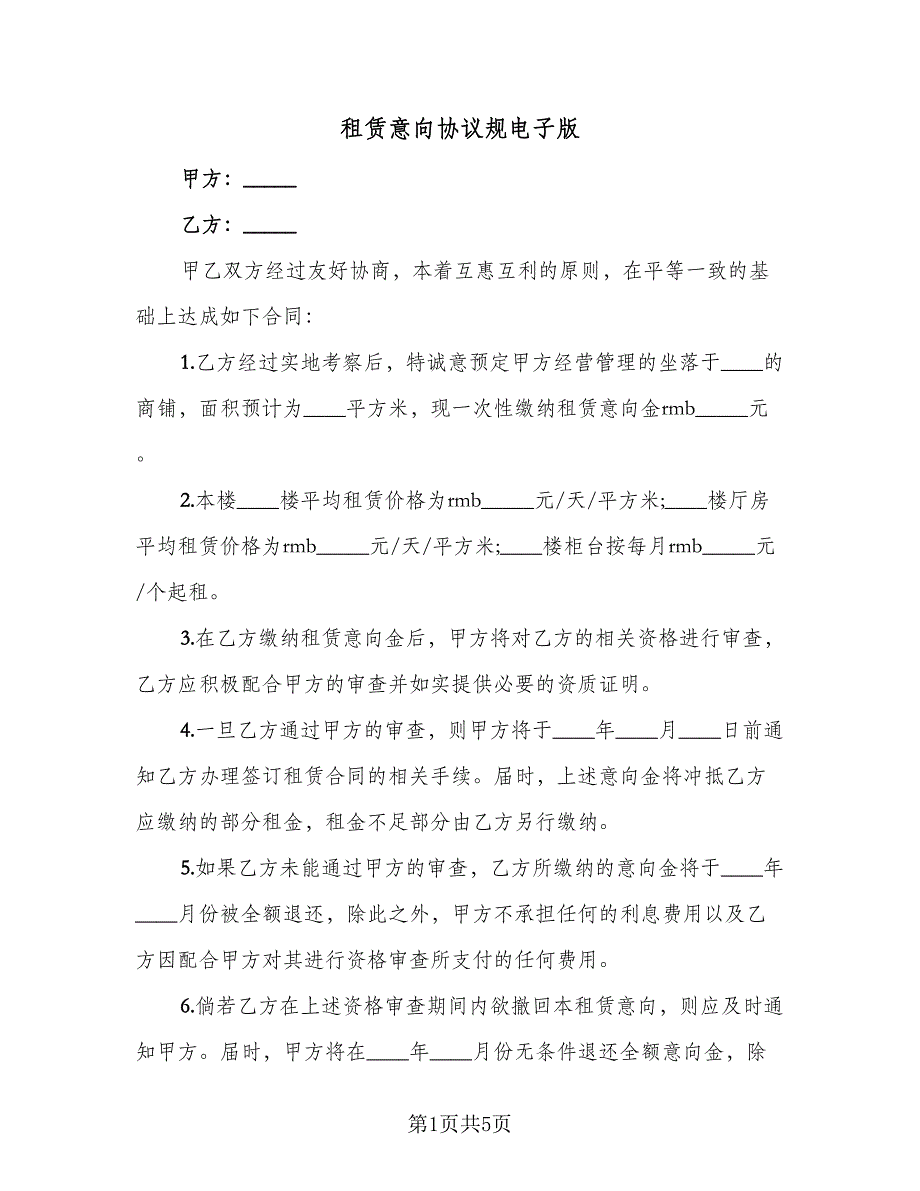 租赁意向协议规电子版
甲方：_____
乙方：_____
甲乙双方经过友好协商，本着互惠互利的原则，在平等一致的基
础上达成如下合同：
1.乙方经过实地考察后，特诚意预定甲方经营管理的坐落于____的
商铺，面积预计为____平方米，现一次性缴纳租赁意向金rmb_____元
。
2.本楼____楼平均租赁价格为rmb_____元/天/平方米;____楼厅房
平均租赁价格为rmb_____元/天/平方米;____楼柜台按每月rmb_____元
/个起租。
3.在乙方缴纳租赁意向金后，甲方将对乙方的相关资格进行审查，
乙方应积极配合甲方的审查并如实提供必要的资质证明。
4.一旦乙方通过甲方的审查，则甲方将于____年____月____日前通
知乙方办理签订租赁合同的相关手续。届时，上述意向金将冲抵乙方
应缴纳的部分租金，租金不足部分由乙方另行缴纳。
5.如果乙方未能通过甲方的审查，乙方所缴纳的意向金将于____年
____月份被全额退还，除此之外，甲方不承担任何的利息费用以及乙
方因配合甲方对其进行资格审查所支付的任何费用。
6.倘若乙方在上述资格审查期间内欲撤回本租赁意向，则应及时通
知甲方。届时，甲方将在____年____月份无条件退还全额意向金，除
第1页共5页